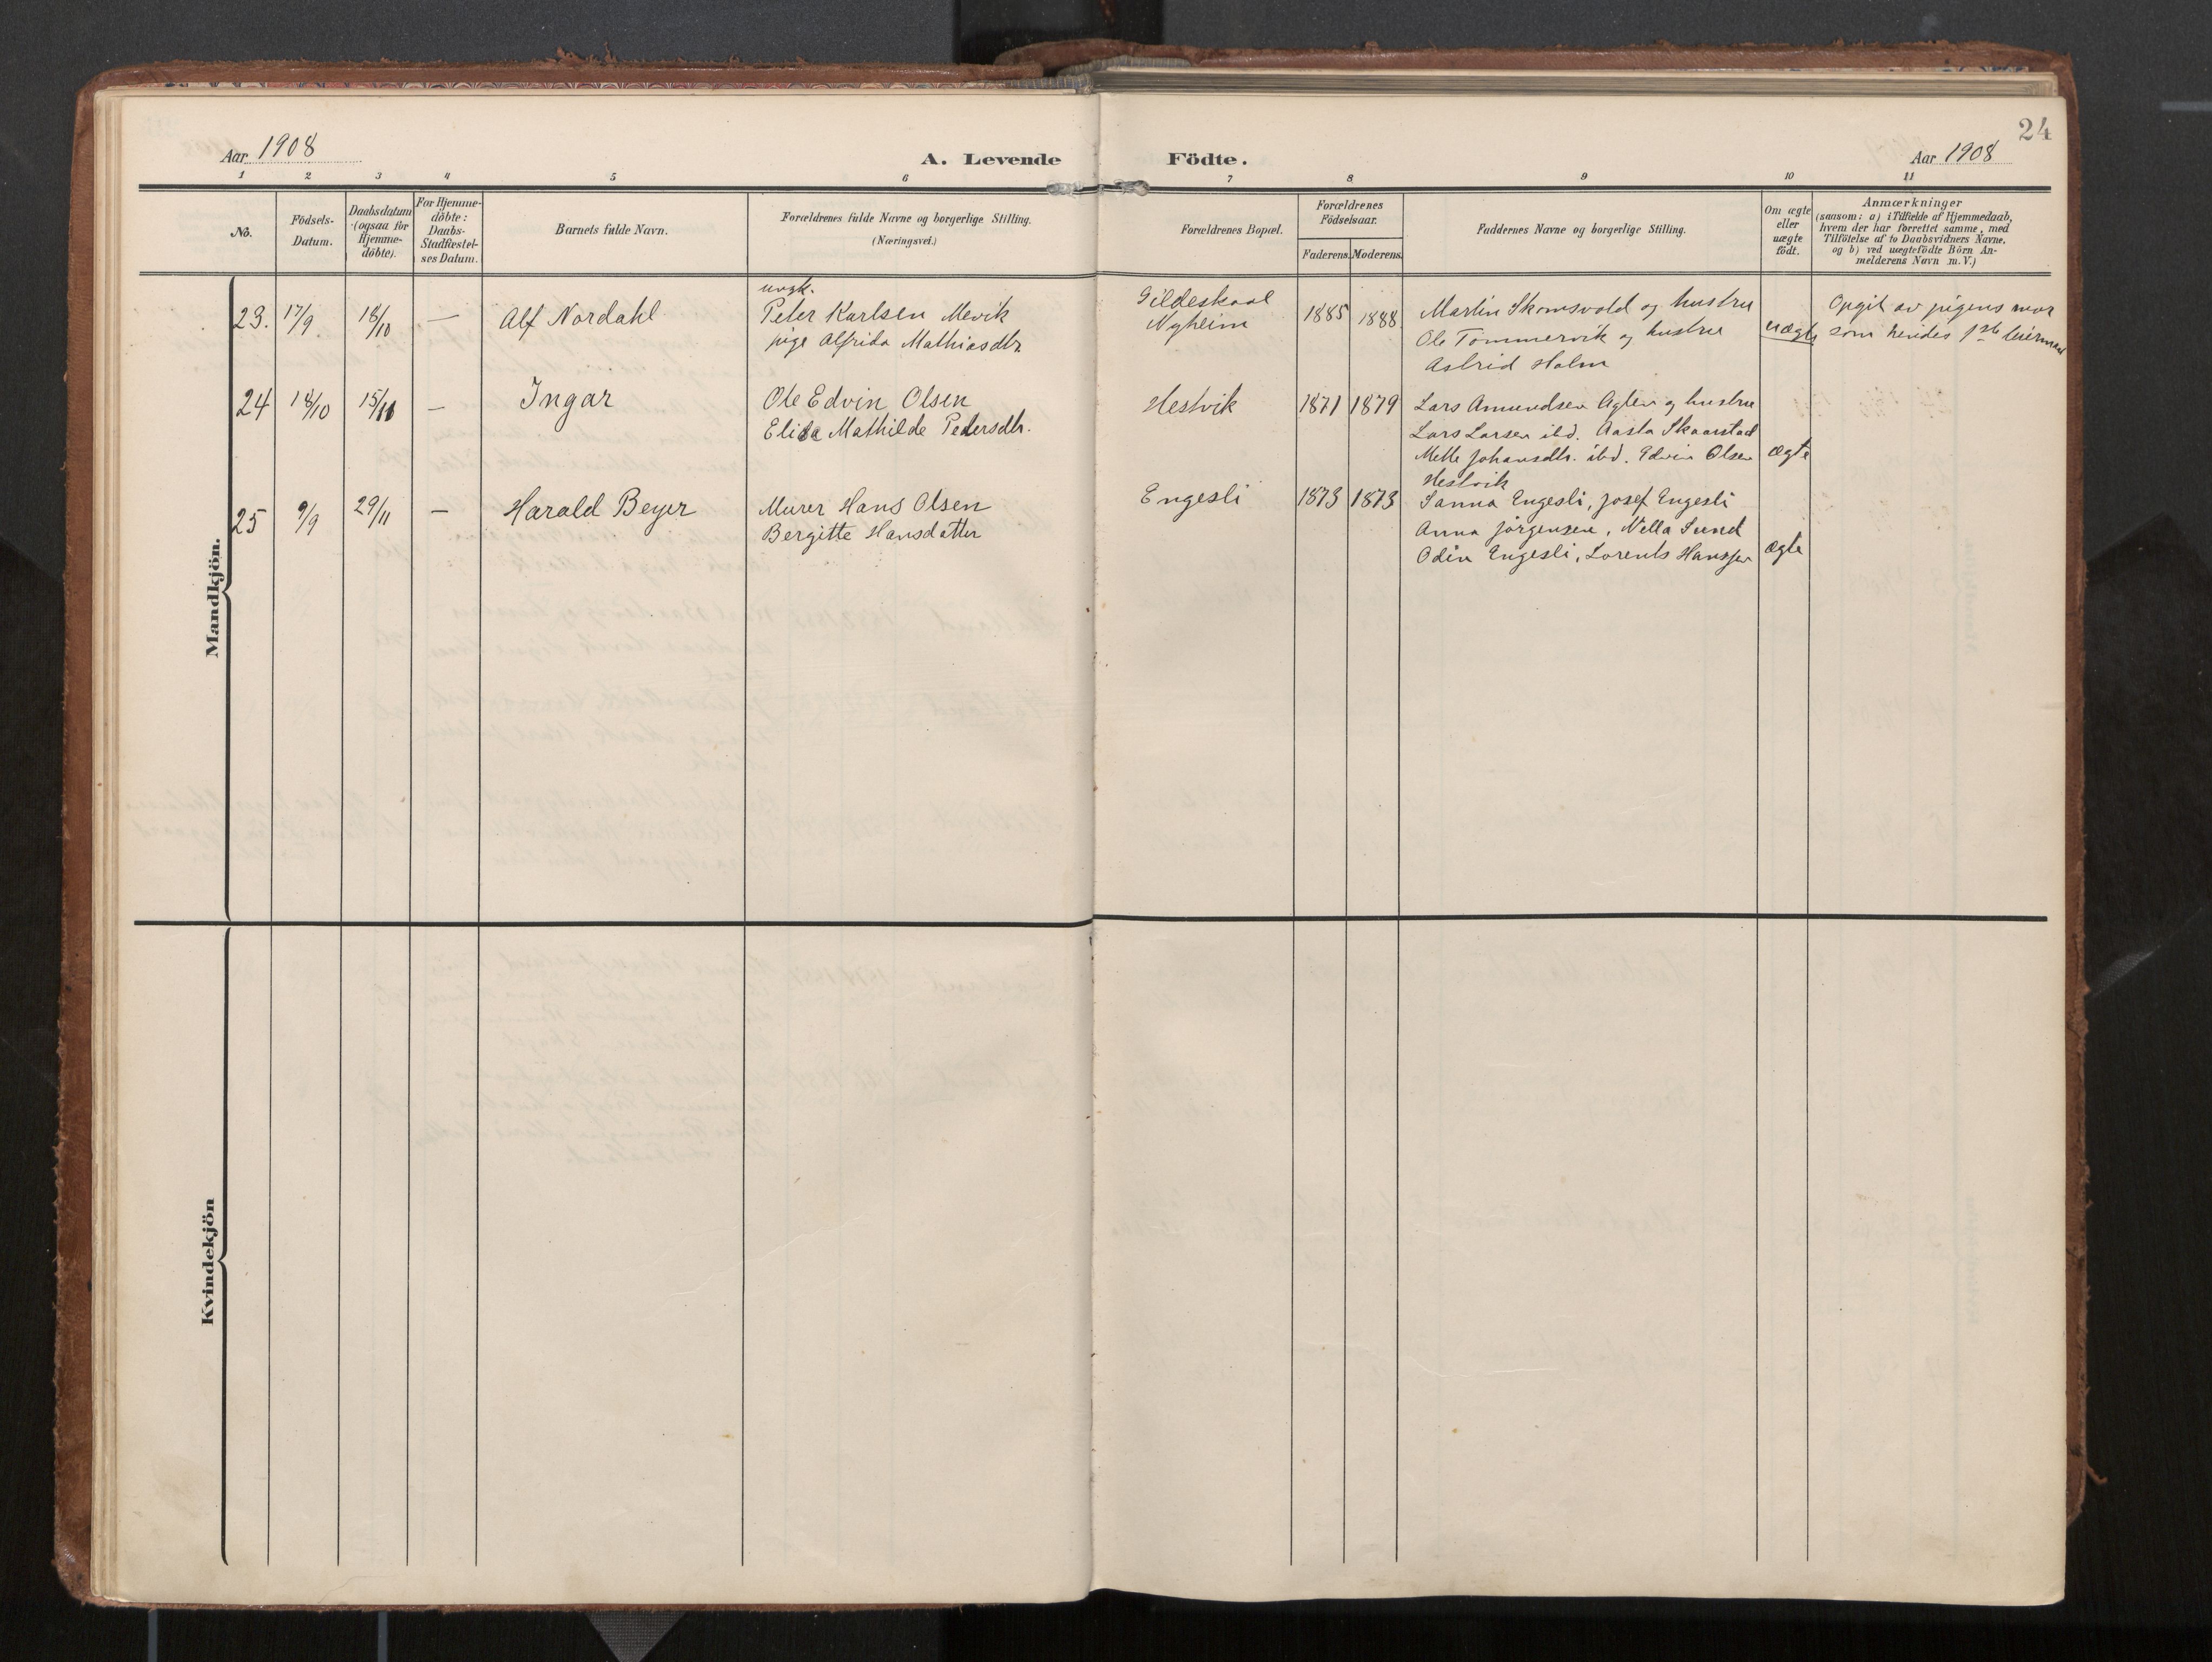 24
Aar 1908
A. Levende Födte.
Aar 1908
1 2 3 4 5 6 7 8 9 10 11
No.
Födsels-
Datum.
Daabsdatum
(ogsaa for
Hjemme-
döbte).
For Hjemme-
döbte:
Daabs-
Stadfæstel-
ses Datum.
Barnets fulde Navn.
Forældrenes fulde Navne og borgerlige Stilling.
(Næringsvei.)
Forældrenes Bopæl.
Forældrenes
Födselsaar.
Faderens. Moderens.
Faddernes Navne og borgerlige Stilling.
Om ægte
eller
uægte
födt.
Anmærkninger
(saasom: a) i Tilfælde af Hjemmedaab,
hvem der har forrettet samme, med
Tilföielse af to Daabsvidners Navne,
og b) ved uægtefödte Börn An-
melderens Navn m. V.)
Mandkjön.
23. 17/9 18/10 — Alf Nordahl
ungk.
Peter Karlsen Mevik
pige Alfrida Mathiasdtr.
Gildeskaal
Nyheim
1885 1888
Martin Skomsvold og hustru
Ole Tommervik og hustru
Astrid Holm
uægte
Opgit av pigens mor
som hendes 1ste leiermaal
24 18/10 15/11 — Ingar
Ole Edvin Olsen
Elida Mathilde Pedersdtr.
Hestvik
1871 1879
Lars Amundsen Agten og hustru
Lars Larsen ibd. Aasta Skaarstad
Mette Johansdtr. ibd. Edvin Olsen
Hestvik
ægte
25 9/9 29/11 — Harald Beyer
Murer Hans Olsen
Bergitte Hansdatter
Engesli
1873 1873
Sanna Engesli, Josef Engesli
Anna Jörgensen, Nella Sund
Odin Engesli, Lorents Hanssen
ægte
Kvindekjön